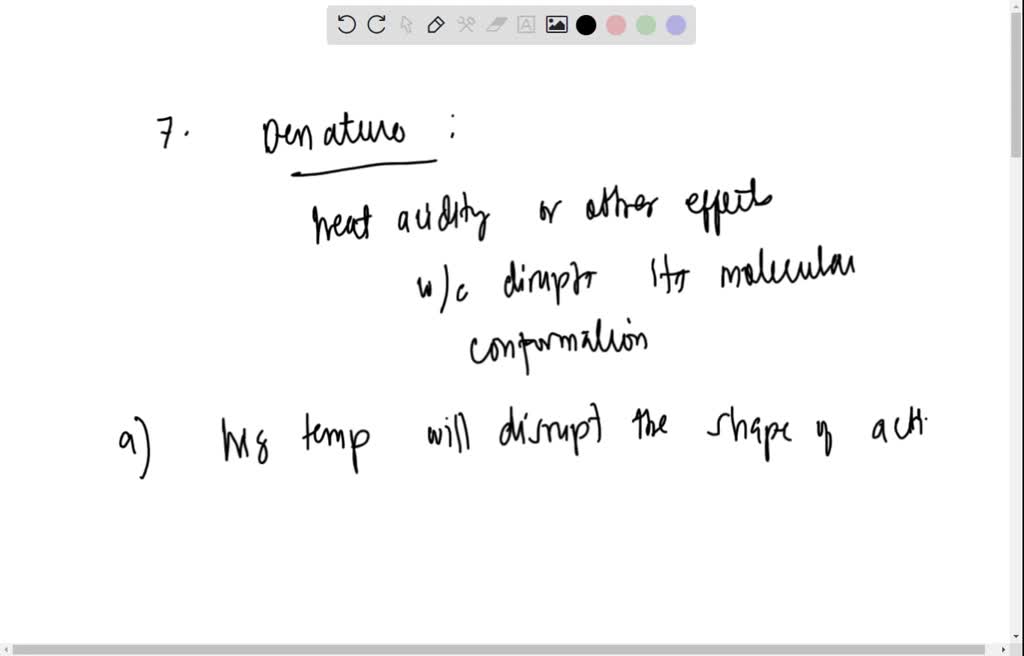 7. Denature :
heat acidity or other effects
w/c disrupts its molecular
conformation
a) hig temp will disrupt the shape of acti